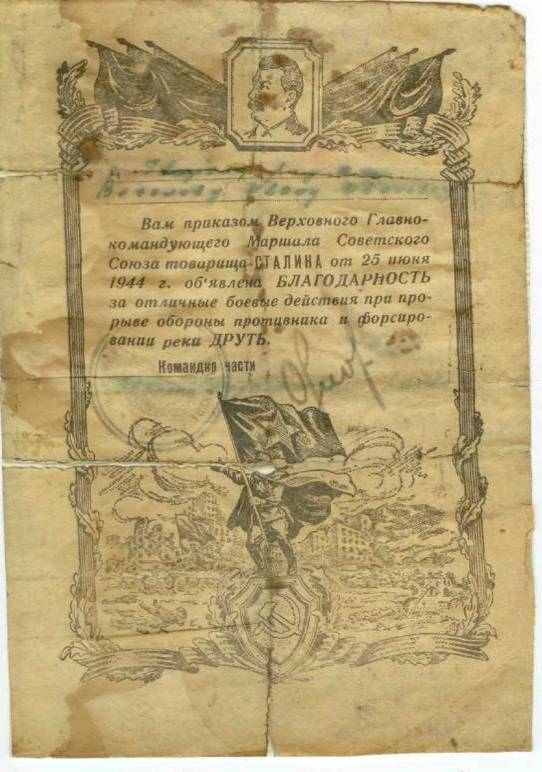 Вам приказом Верховного Главно-
командующего Маршала Советского
Союза товарища СТАЛИНА от 25 июня
1944 г. об'явлена БЛАГОДАРНОСТЬ
за отличные боевые действия при про-
рыве обороны противника и форсиро-
вании реки ДРУТЬ.
Командир части